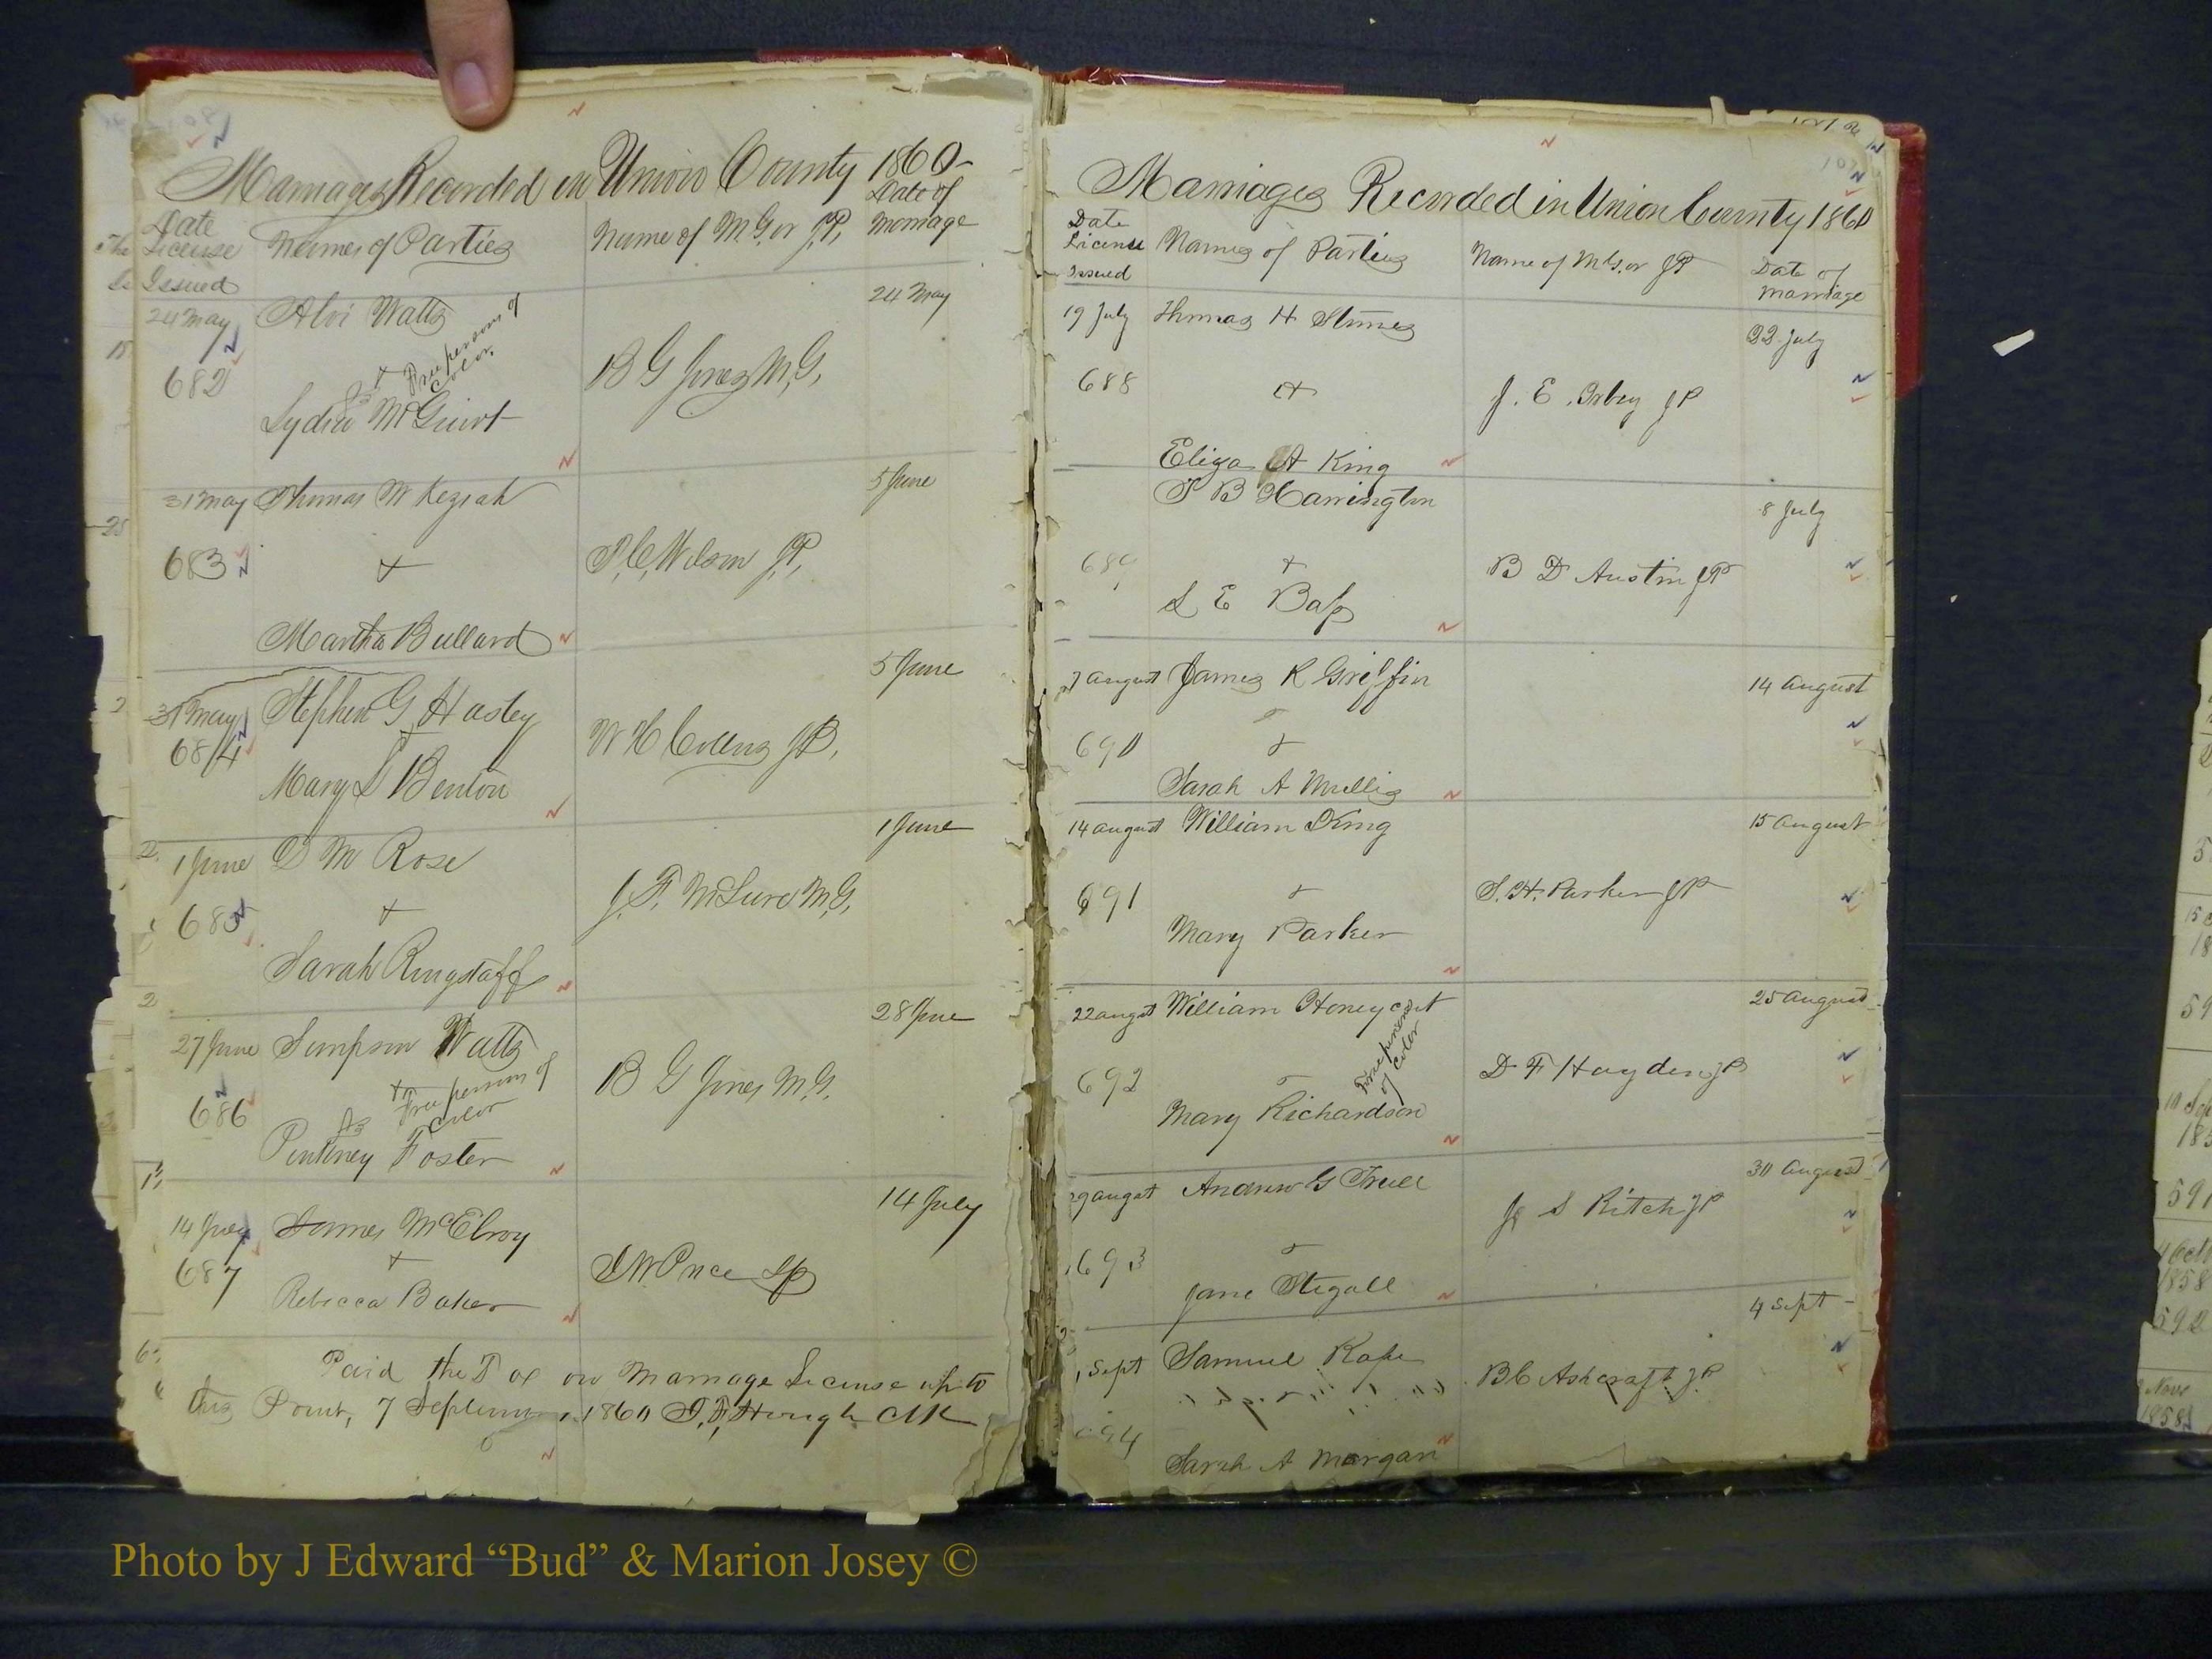 Marriages Recorded in Union County 1860
Date License Issued
Names of Parties
Name of M.G. or J.P.
Date of Marriage
24 May
Alvi Watts
24 May
682
&
Free persons of Color
B G Jones M.G.
Lydia McGuirt
31 May
Thomas W Keziah
5 June
683
&
P. C. Wilson J.P.
Martha Bullard
31 May
Stephen G Hasley
5 June
684
&
W H Collins J.P.
Mary L Benton
1 June
D M Rose
1 June
685
&
J. F. McLure M.G.
Sarah Ringstaff
27 June
Simpson Watts
28 June
686
&
Free persons of Color
B G Jones M.G.
Pinkney Foster
14 July
James McElroy
14 July
687
&
J W Price JP
Rebecca Baker
Paid the Tax on Marriage License up to
this Point, 7 September 1860 J. F. Hough Clk
Marriages Recorded in Union County 1860
Date License Issued
Names of Parties
Name of M.G. or JP
Date of Marriage
19 July
Thomas H Stinnes
22 July
688
&
J. E. Irbey JP
Eliza A King
T B Harrington
8 July
689
&
B D Austin JP
L E Bass
7 August
James R Griffin
14 August
690
&
Sarah A Mullis
14 august
William King
15 august
691
&
S. H. Parker JP
Mary Parker
22 augst
William Honeycut
25 august
692
Free persons of Color
D F Hayden JP
Mary Richardson
29 augst
Andrew G Trull
30 August
693
J S Ritch JP
Jane Stegall
1 Sept
Samuel Rape
4 Sept
694
B C Ashcraft JP
Sarah A Morgan
Photo by J Edward “Bud” & Marion Josey ©